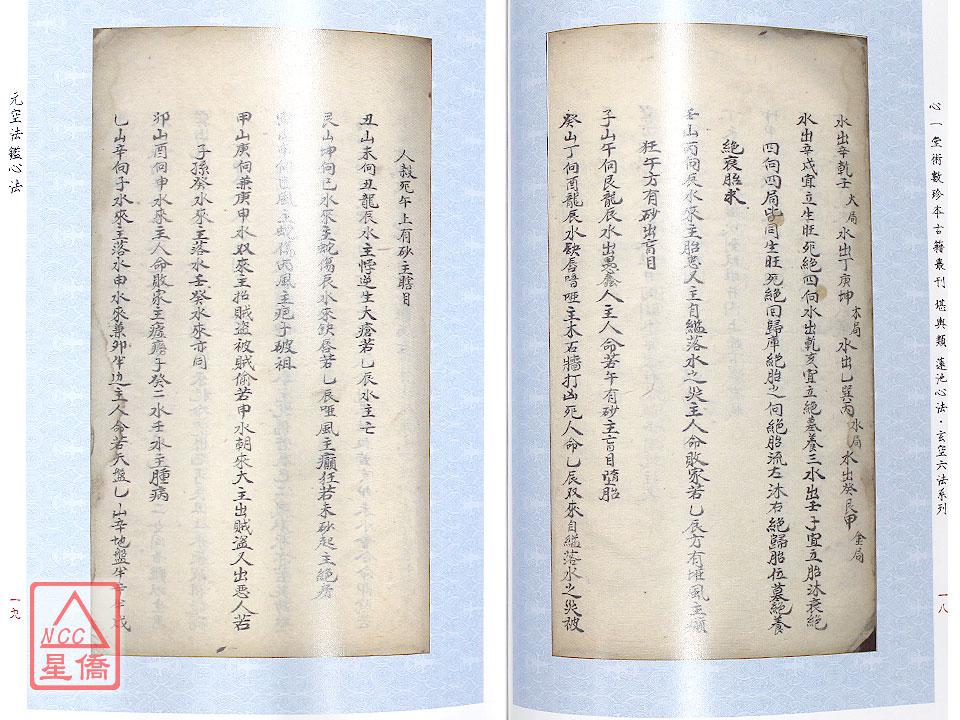 心一堂術數珍本古籍叢刊 堪輿類 蓮池心法・玄空六法系列
一八
水出辛乾壬 火局 水出丁庚坤 木局 水出乙巽丙 水局 水出癸艮甲 金局
水出辛戌宜立生旺死絕四向水出乾亥宜立絕墓養三水出壬子宜立胎沐衰絕
四向四局皆同生旺死絕回歸庫絕胎之向絕胎流左沐右絕歸胎位墓絕養
絕衰胎求
壬山丙向辰水來主胎患又主自縊落水之災主人命敗家若乙辰方有堆風主癲
狂午方有砂出盲目
子山午向艮龍辰水出愚蠢人主人命若午有砂主盲目隨胎
癸山丁向酉龍辰水缺唇喑啞主木石牆打凶死人命乙辰双來自縊落水之災被
人殺死午上有砂主瞎目
丑山未向丑龍辰水主悖逆生大瘡若乙辰水主亡
艮山坤向巳水來主蛇傷辰水來缺唇若乙辰啞風主癲狂若未砂起主絕房
甲山庚向兼庚申水双來主招賊盜被賊偷若甲水朝來大主出賊盜又出惡人若
子孫癸水來主落水壬癸水來亦同
卯山酉向申水來主人命敗家主瘧癆子癸二水壬水主腫病
乙山辛向子水來主落水申水來兼卯半边主人命若天盤乙山辛地盤半
元空法鑑心法
一九
NCC
星僑